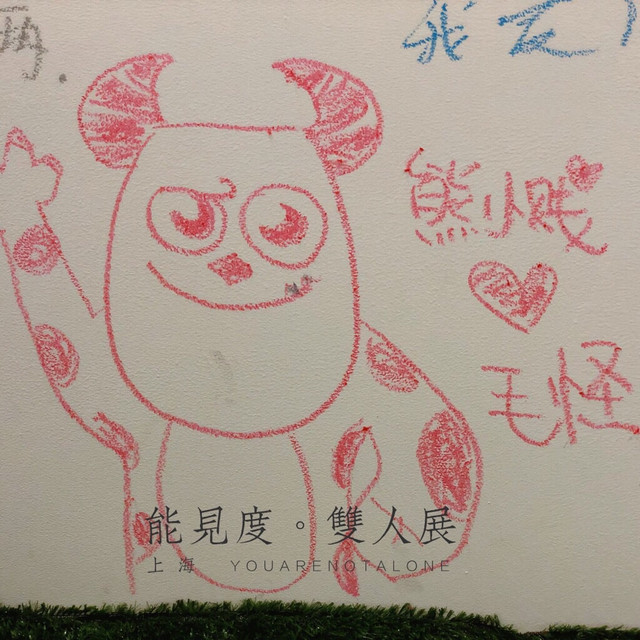 我去
熊小贱
毛怪
能見度。雙人展
上海 YOUARENOTALONE